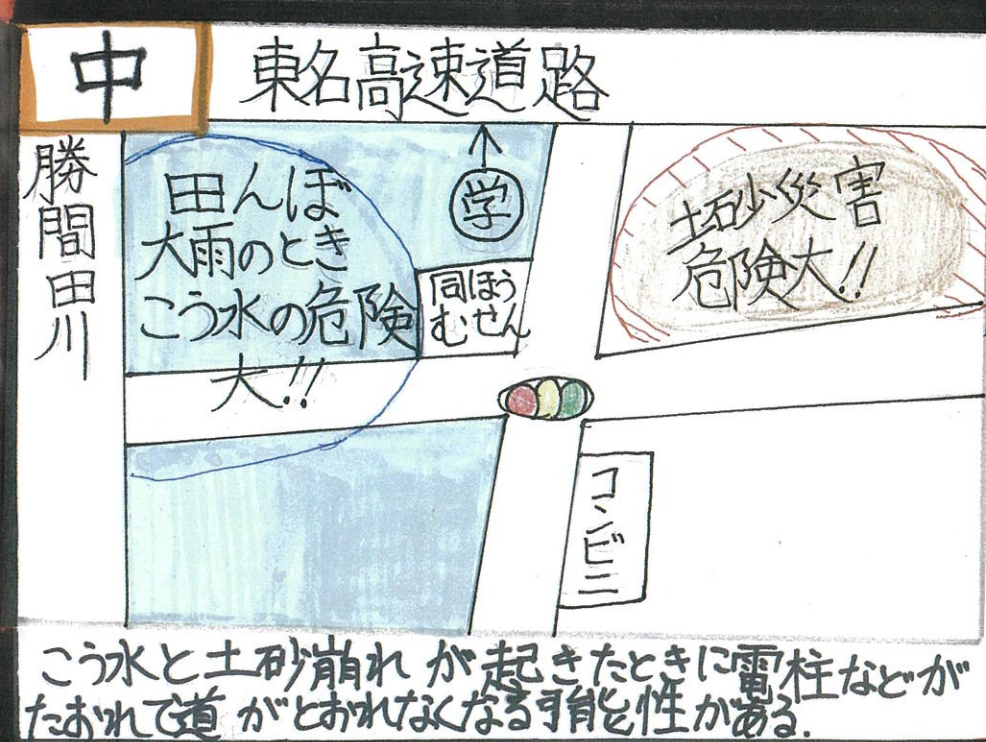 中
東名高速道路
勝間田川
田んぼ
大雨のとき
こう水の危険
大!!
学
同ほう
むせん
土砂災害
危険大!!
コンビニ
こう水と土砂崩れが起きたときに電柱などが
たおれて道がとおれなくなる可能性がある.